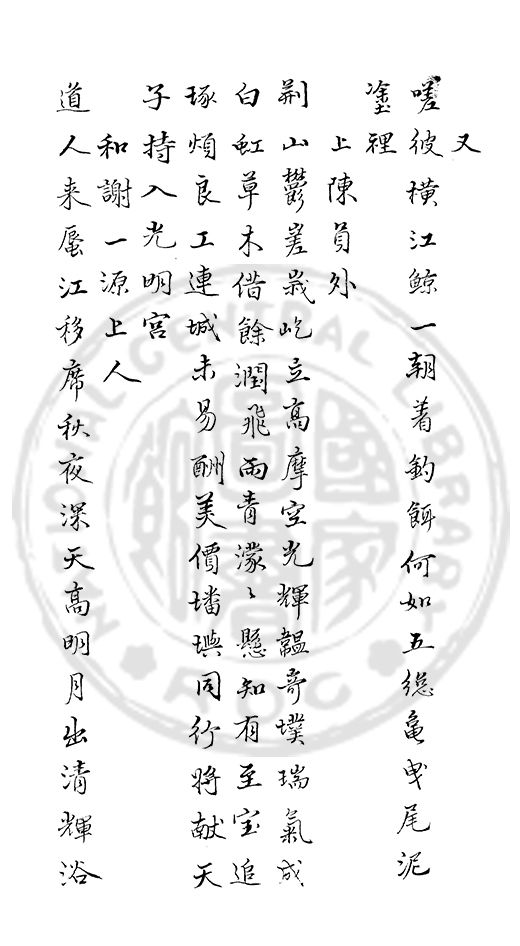 又
嗟彼橫江鯨一朝着釣餌何如五總龜曳尾泥
塗裡
上陳員外
荆山鬱嵳峩屹立高摩空光輝韞奇璞瑞氣成
白虹草木借餘潤飛雨青濛〻懸知有至宝追
琢煩良工連城未易酬美價璠璵同行將献天
子持入光明宮
和謝一源上人
道人来蜃江移席秋夜深天高明月出清輝浴
NATIONAL CENTRAL LIBRARY
國家圖書館
ROC